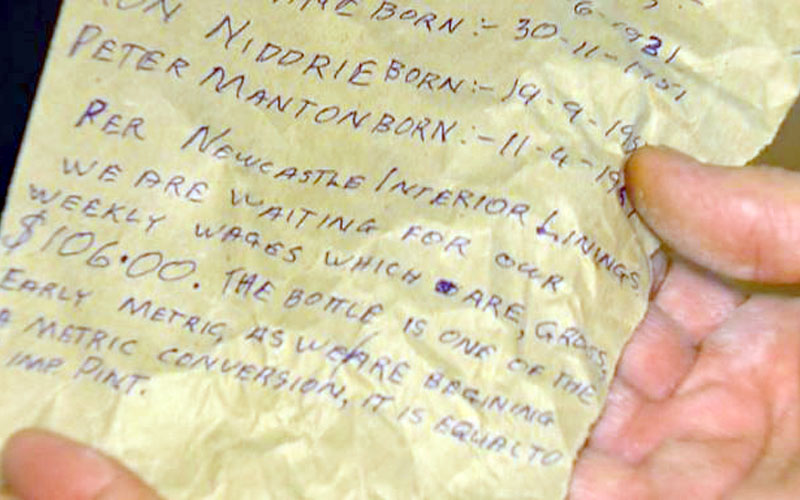 BORN:- 30-11-1951
NIDDRIE BORN:- 19-9-19
PETER MANTON BORN:- 11-4-19
PER NEWCASTLE INTERIOR LININGS
WE ARE WAITING FOR OUR
WEEKLY WAGES WHICH ARE, GROSS,
$106.00. THE BOTTLE IS ONE OF THE
EARLY METRIC, AS WE ARE BEGINING
METRIC CONVERSION, IT IS EQUAL TO
IMP PINT.